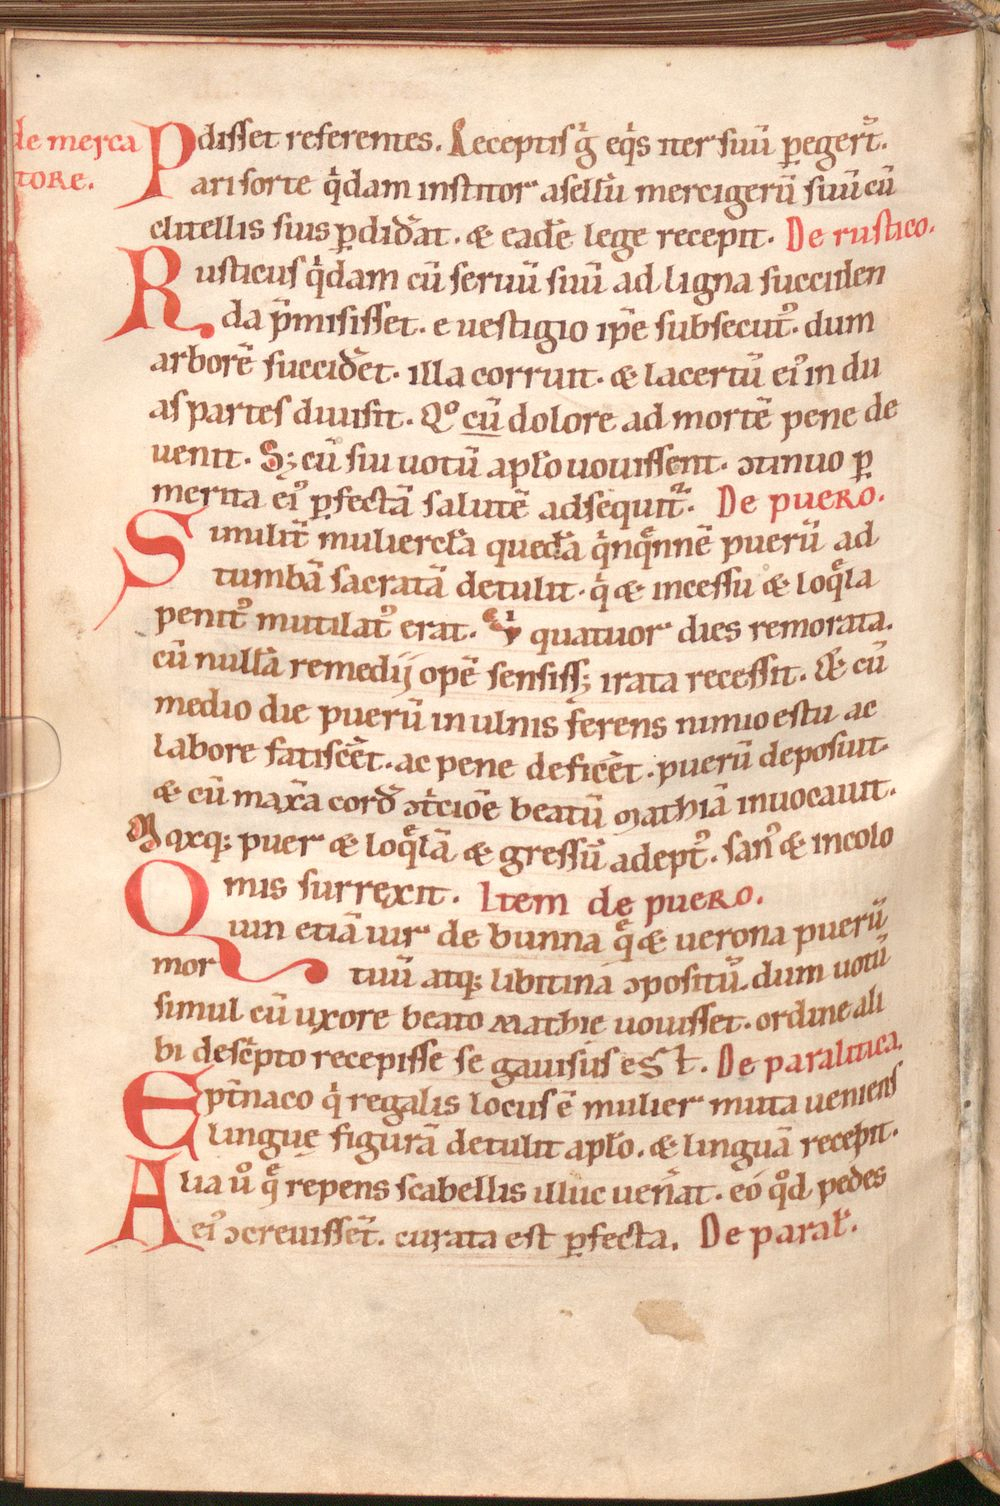 de merca
tore.
disset referentes. Receptis g̍ eq̍s iter suū ꝑegerт̄.
Pari sorte q̍dam institor asellū mercigerū suū cū
clitellis suis ꝑdiđat. & eadē lege recepit. De rustico.
Rusticus q̍dam cū seruū suū ad ligna succiden
da p̄misisset. e uestigio ip̄e subsecut᾽. dum
arborē succiđet. illa corruit. & lacertū ei᾽ in du
as partes diuisit. Qͦ cū dolore ad mortē pene de
uenit. S; cū sui uotū apl̄o uouissent. ɔtinuo ꝑ
merita ei᾽ ꝑfectā salutē adsequit᷑. De puero.
Similit̄ muliercl̄a quedā q̍nqͣnnē puerū ad
tumbā sacratā detulit. q̍ & incessu & loqͤla
penit᾽ mutilat᾽ erat. quatuor dies remorata.
cū nullā remedij opē sensiss; irata recessit. & cū
medio die puerū in ulnis ferens nimio estu ac
labore fatiscēt. ac pene deficēt. puerū deposuit.
& cū max̄a corđ ɔt̄cioē beatū mathiā inuocauit.
Moxq; puer & loqͤlā & gressū adept᾽. san᾽ & incolo
mis surrexit. Item de puero.
Quin etiā uir de bunna qͤ & uerona puerū
mortuū atq; libitina ɔpositū. dum uotū
simul cū uxore beato mathie uouisset. ordine ali
bi desc̄pto recepisse se gauisus est. De paralitica.
Ept̄naco q̍ regalis locus ē mulier muta ueniens
linguę figurā detulit apl̄o. & linguā recepit.
Alia uͦ qͤ repens scabellis illuc uen̄at. eo qͦd pedes
ei᾽ ɔcreuisset̄. curata est ꝑfecta. De paral̄.